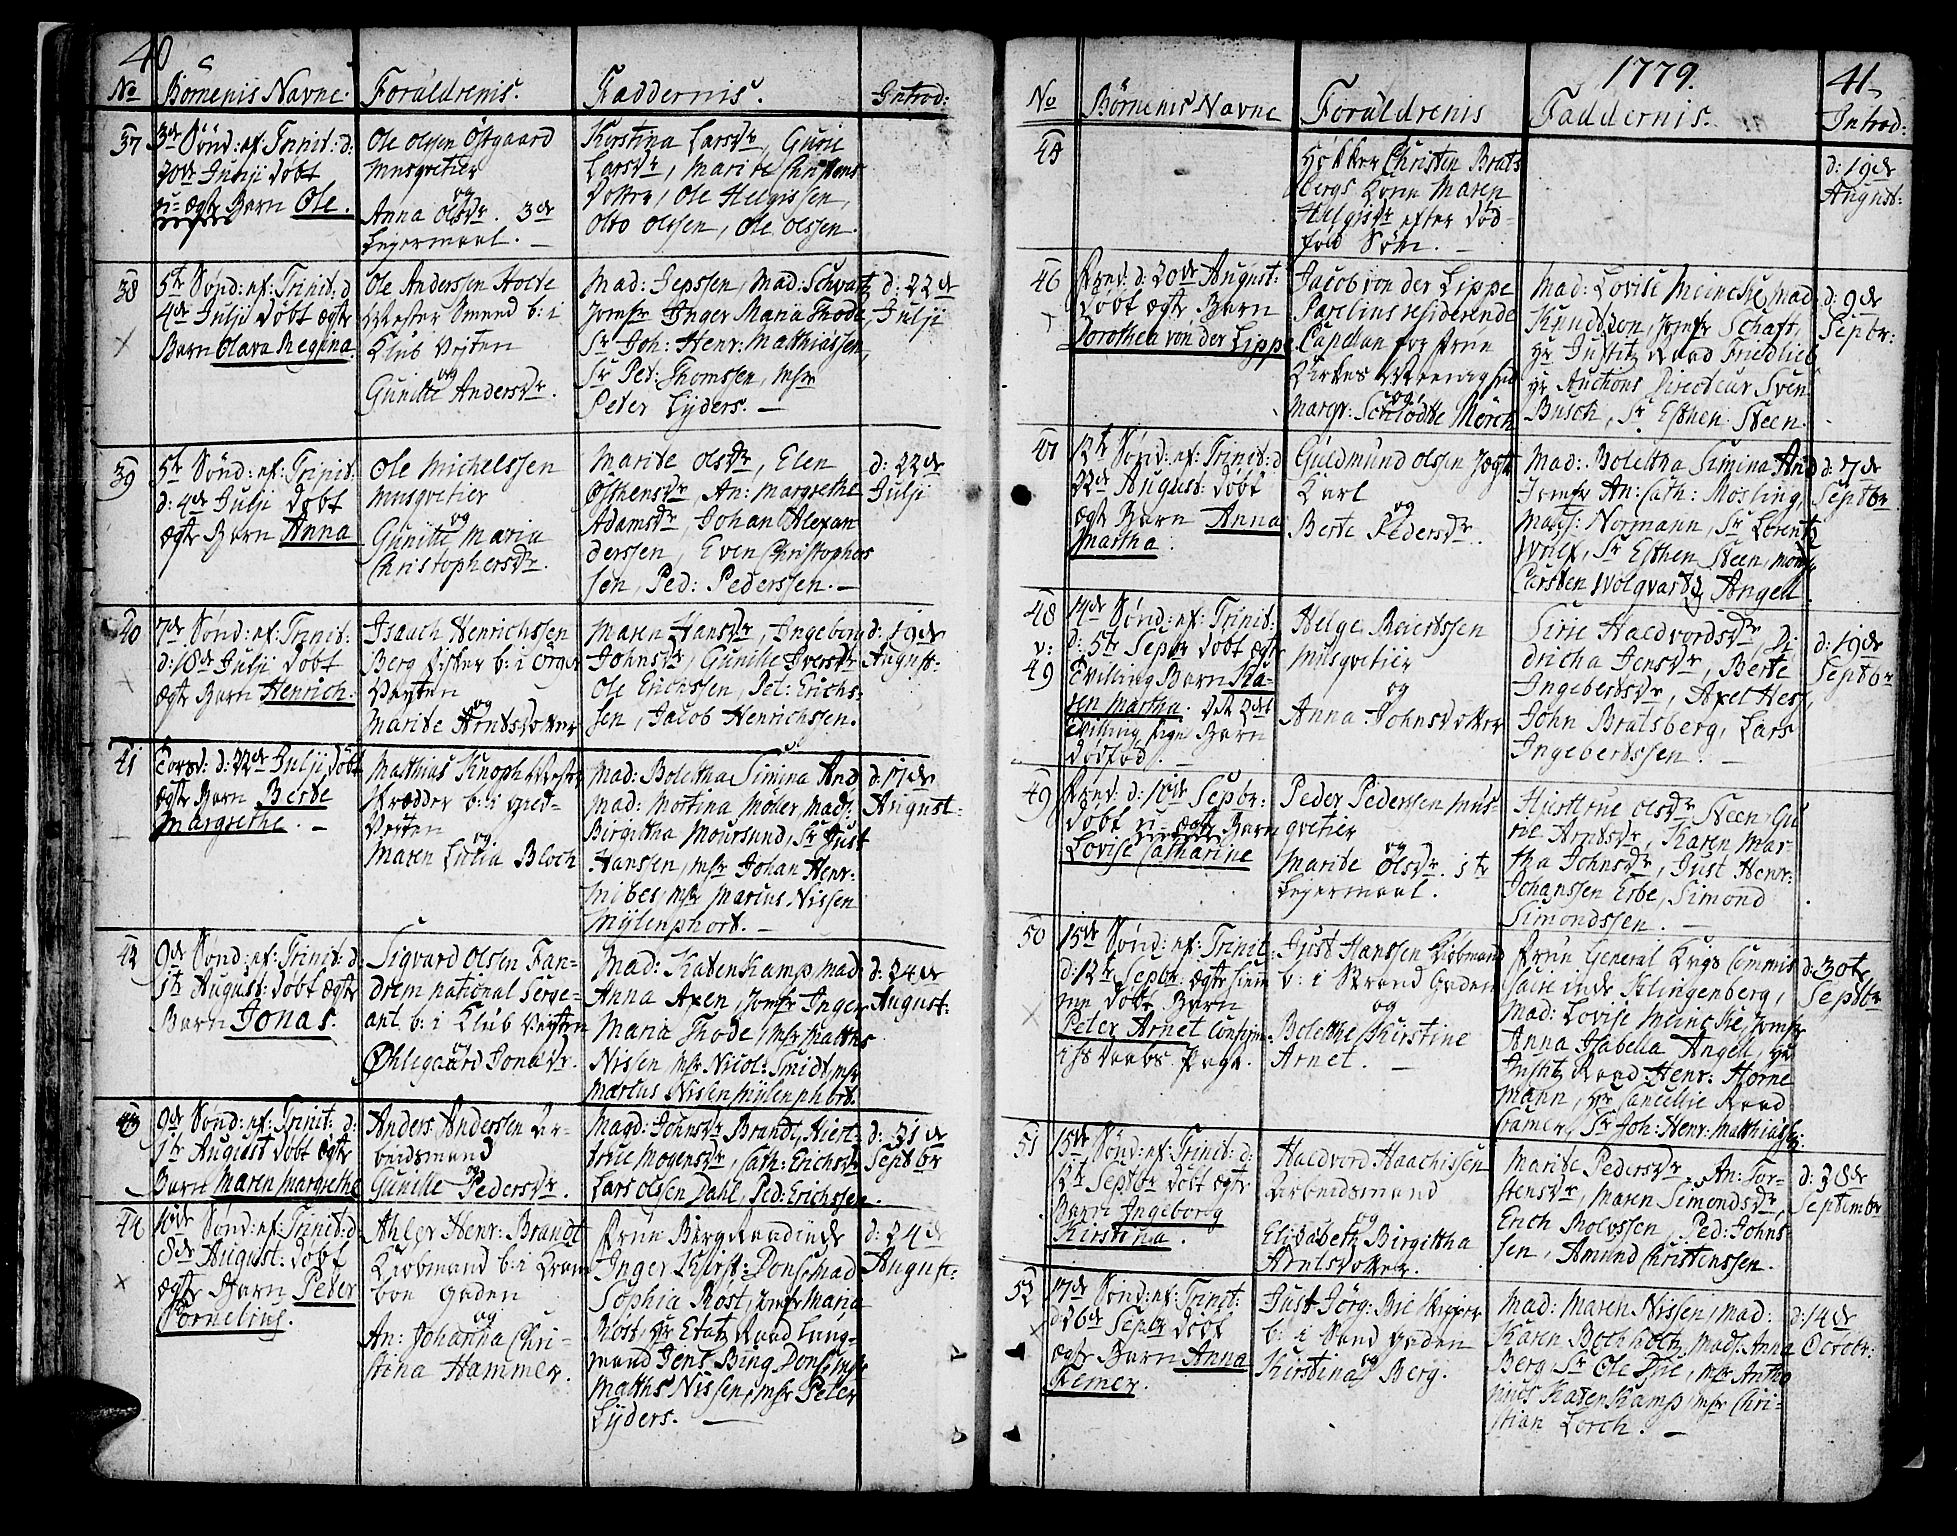 40
No
Børnenis Navne.
Forældrenis.
Faddernis.
Introd:
37
3de Sønd: ef: Trinit: d:
20de Junji døbt
u-ægte Barn Ole.
Ole Olsen Østgaard
Musqvetier
og
Anna Olsdr. 3de
Lejermaal.
Kirstina Larsdr, Guru
Larsdr, Marite Christens
Dotter, Ole Helgissen,
Olso Olssen, Ole Olssen.
38
5te Sønd: ef: Trinit: d
4de Julji døbt ægte
Barn Olava Regina
Ole Anderssen Holte
Mester Smed b: i
Klub Vejten
og
Gunille Andersdr.
Mad: Jepssen, Mad: Schvartz
Jomfr Inger Maria Thode,
Sr Joh: Henr: Matthiassen,
Sr Pet: Thomssen, Msr
Peter Lyders.
d: 22de
Julji
39
5te Sønd: ef: Trinit:
d: 4de Julji døbt
ægte Barn Anna
Ole Michelssen
Musqvetier
og
Gunille Maria
Christophersdr.
Marite Olsdr, Elen
Osthensdr, An: Margrethe
Adamsdr, Johan Alexan
derssen, Even Christophers
sen, Ped: Pederssen.
d: 22de
Julji
40
7de Sønd: ef: Trinit:
d: 18de Julji døbt
ægte Barn Henrich.
Isaach Henrichssen
Berg Fisker b: i Ørge
Vejten
og
Marite Arntsdotter
Maren Hansdr, Ingeborg
Johnsdr, Gunille Iversdr
Ole Erichssen, Pet: Erichs-
sen, Jacob Henrichssen.
d: 19de
August:
41
Torsd: d: 22de Julji døbt
ægte Barn Berte
Margrethe.
Matthias Knoph Mester
Skrædder b: i Smed-
Vejten
og
Maren Lucia Bloch
Mad: Bolettha Simina And
Mad: Mortina Møler, Mad:
Birgitha Moursund, Sr Just
Hanssen, Msr Johan Henr:
Mibes, Msr Marcus Nissen
Mylenphort.
d: 17de
August:
42
9de Sønd: ef: Trinit: d:
1te August: døbt ægte
Barn Jonas.
Sigvard Olsen Fan-
drem national Serge-
ant b: i Klub Vejten
og
Øhlegaard Jonadr.
Mad: Katen Kamp, Mad:
Anna Axen, Jomfr Inger
Maria Thode, Msr Matths
Nissen Msr Nicol: Smidt, Msr
Marcus Nissen Mylenphort.
d: 24de
August:
43
9de Sønd: ef: Trinit: d:
1te August døbt ægte
Barn Maren Margrethe
Anders Anderssen Ar-
beidsmand
og
Gunille Pedersdr.
Magd: Johnsdr Brandt, Kierst-
tine Mogensdr, Cath: Erichsdr
Lars Olssen Dahl, Ped: Erichssen.
d: 21de
Septbr
44
10de Sønd: ef: Trinit: d
8de August: døbt
ægte Barn Peder
Cornelius.
Ahler Henr: Brandt
Kiøbmand b: i Kram
boe Gaden
og
An: Johanna Chri-
stina Hammer.
Frue Bergraadinde
Inger Kirst: Dons, Mad
Sophia Rost, Jomfr Maria
Rost, Hr Etatz Raad Lung-
mand Jens Bing Dons, Msr
Matths Nissen, Msr Peter
Lyders.
d: 24de
August:
1779.
41
No
Børnenis Navne
Forældrenis
Faddernis.
Introd:
45
Høkker Christen Brats
bergs Kone Maren
Helgisdr efter død-
fød Søn.
d: 19de
August:
46
Fred: d: 20de August:
døbt ægte Barn
Dorothea von der Lippe
Jacob von der Lippe
Parelius residerende
Capelan for Frue
Kirkes Menighed
og
Margr: Schiødtte Mørch
Mad: Lovise Meincke, Mad
Knudtzon, Jomfr Schaft,
Hr Justitz Raad Friedlieb
Hr Auctions Directeur Sven
Busch, Sr Esthen Steen.
d: 9de
Sepbr:
47
12te Sønd: ef: Trinit: d
22de August: døbt
ægte Barn Anna
Martha.
Guldmund Olssen Jægt
Karl
og
Berte Pedersdr.
Mad: Bolettha Simina And
Jomfr An: Cath: Møsling,
Mads: Normann, Sr Lorentz
Wulf, Sr Esthen Steen, Mons
Carsten Volqvartz Angell.
d: 7de
Septbr
48
v:
49
14de Sønd: ef: Trinit:
d: 5te Sepbr døbt ægte
Tvilling Barn Ka-
ren Martha. Det 2det
Tvilling Pige Barn
dødfød.
Helge Reiertssen
Musqvetiir
og
Anna Johnsdotter
Sirie Haldvordsdr, Di
dricha Jensdr, Berte
Ingebertsdr, Axel Hes,
John Bratsberg, Lars
Ingebertssen.
d: 19de
Septbr
49
Fred: d: 10de Sepbr:
døbt u-ægte Barn
Lovise Catharine
Peder Pederssen Mus-
qvetiir
og
Marite Olsdr. 1te
Lejermaal.
Kierstine Olsdr Steen, Gu
rie Arntsdr, Karen Mar-
tha Johnsdr, Just Henr:
Johanssen Erbe, Simond
Simondssen.
50
15de Sønd: ef: Trinit:
d: 12te Sepbr: ægte hiem
me døbt Barn
Peter Arnet Confirm-
Just Hanssen Kiøbmand
b: i Strand Gaden
og
Bolette Kirstine
Arnet.
Frue General Krigs Commis
sairinde Klingenberg,
Mad: Lovise Meincke, Jomfr
Anna Isabella Angell, Hr
Justitz Raad Henr: Horne
mann, Hr Cancellie Raad
Cramer, Sr Joh: Henr: Matthiassen.
d: 30te
Septbr
51
15de Sønd: ef: Trinit: d:
12te Septbr døbt ægte
Barn Ingeborg
Kirstina.
Haldvord Haachissen
Arbeidsmand
og
Elisabeth Birgittha
Arntsdotter.
Marite Pedersdr, An: Tor-
stensdr, Maren Simondsdr,
Erich Rolvssen, Ped: Johns
sen, Amund Christenssen.
d: 28de
Septembr
52
17de Sønd: ef: Trinit:
d: 26de Sepbr døbt
ægte Barn Anna
Femer.
Just Jørg: Bie Skipper
b: i Sand Gaden
og
Kirstina Berg.
Mad: Maren Nissen, Mad:
Karen Bochholtz, Mads: Anna
Berg, Sr Ole Due, Msr Antho
nius Katen Kamp, Msr Chri-
stian Lorch.
d: 14de
Octobr: